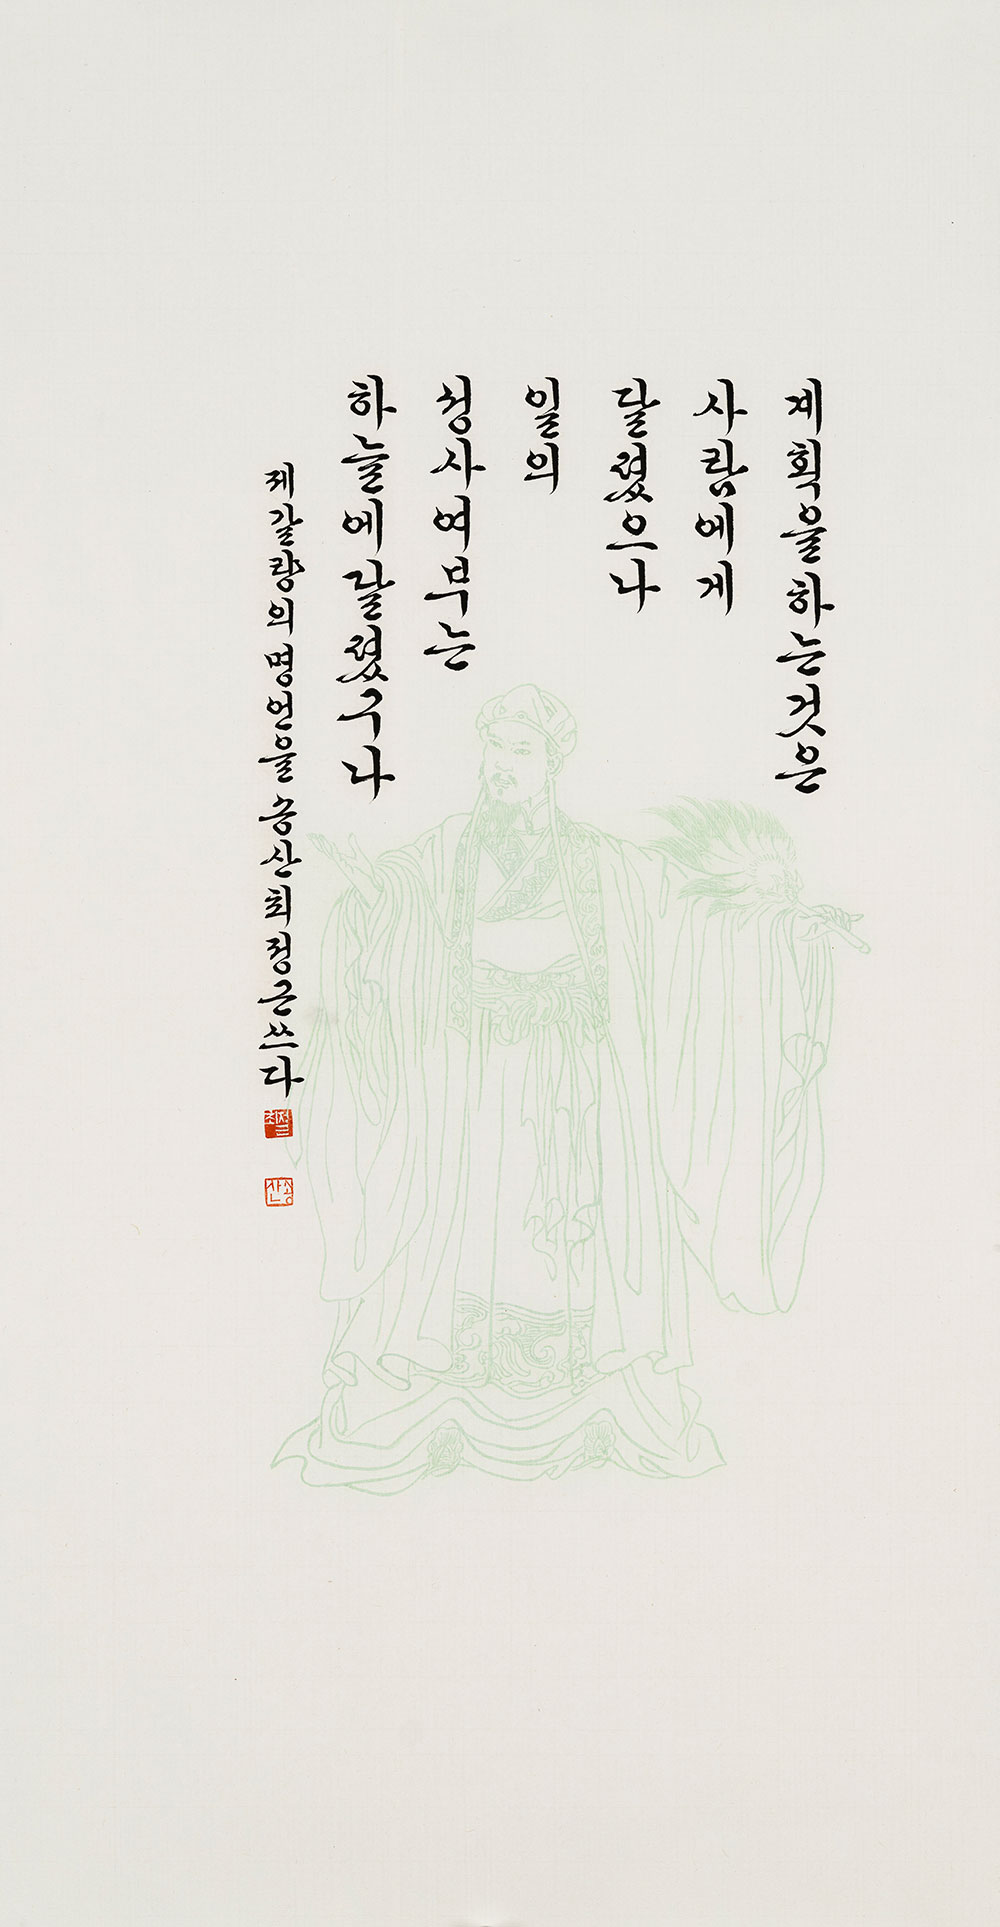 계획을하는것은
사람에게
달렸으나
일의
성사여부는
하늘에달렸구나
제갈량의명언을 송산최정근쓰다
송산